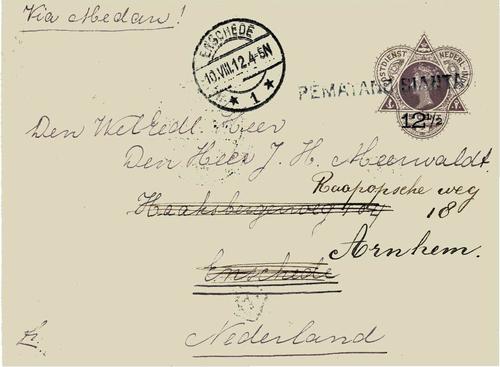 Via Medan!
ENSCHEDE
10.VIII.12.4-5N
1
POSTDIENST NEDERL-INDIE
12½
PEMATANG SIANTAR
Den WelEdl. Heer
Den Heer J. H. Meerwaldt.
Raapopsche weg
Haaksbergerweg 18
Arnhem.
Enschede
Nederland